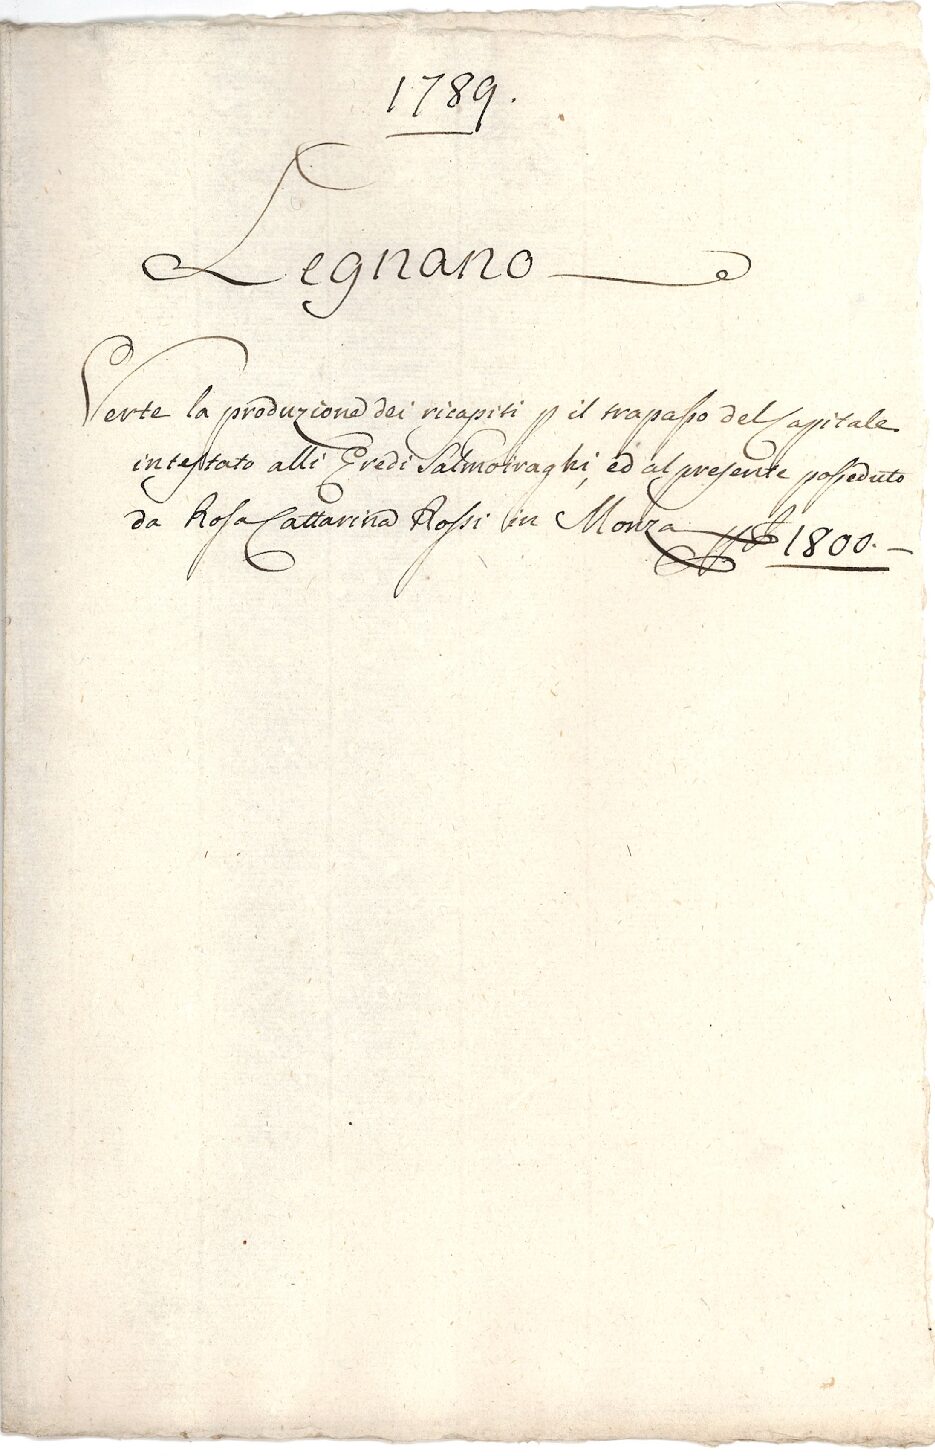 1789.
Legnano
Verte la produzione dei ricapiti p il trapasso del Capitale
intestato alli Eredi Salmoiraghi, ed al presente posseduto
da Rosa Cattarina Rossi in Monza 1800.-